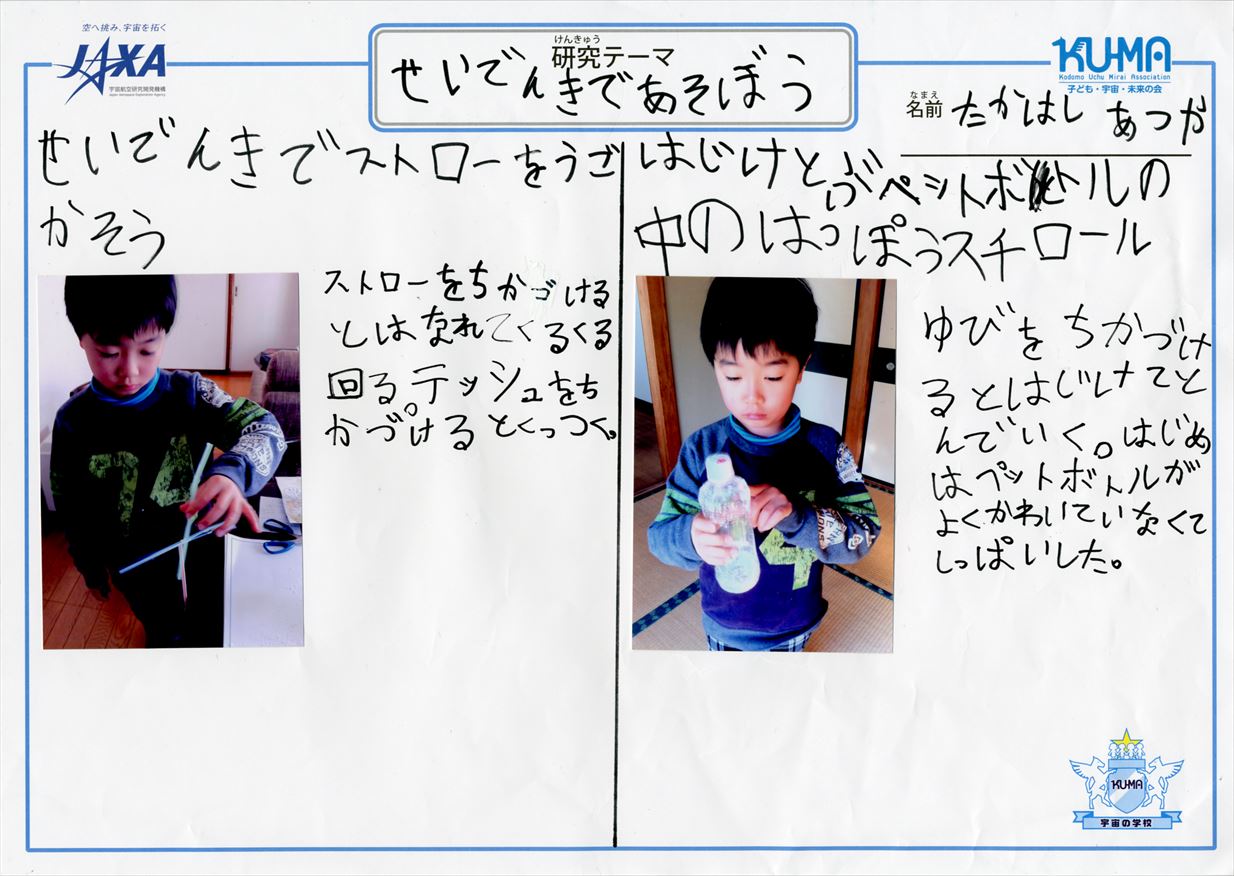 空へ挑み、宇宙を拓く
JAXA
宇宙航空研究開発機構
Japan Aerospace Exploration Agency
けんきゅう
研究テーマ
せいでんきであそぼう
KU-MA
Kodomo Uchu Mirai Association
子ども・宇宙・未来の会
なまえ
名前 たかはし あつか
せいでんきでストローをうご
かそう
ストローをちかづける
とはなれてくるくる
回るテッシュをち
かづけるとくっつく。
はじけとぶペットボトルの
中のはっぽうスチロール
ゆびをちかづけ
るとはじけてと
んでいく。はじめ
はペットボトルが
よくかわいていなくて
しっぱいした。
KU-MA
宇宙の学校